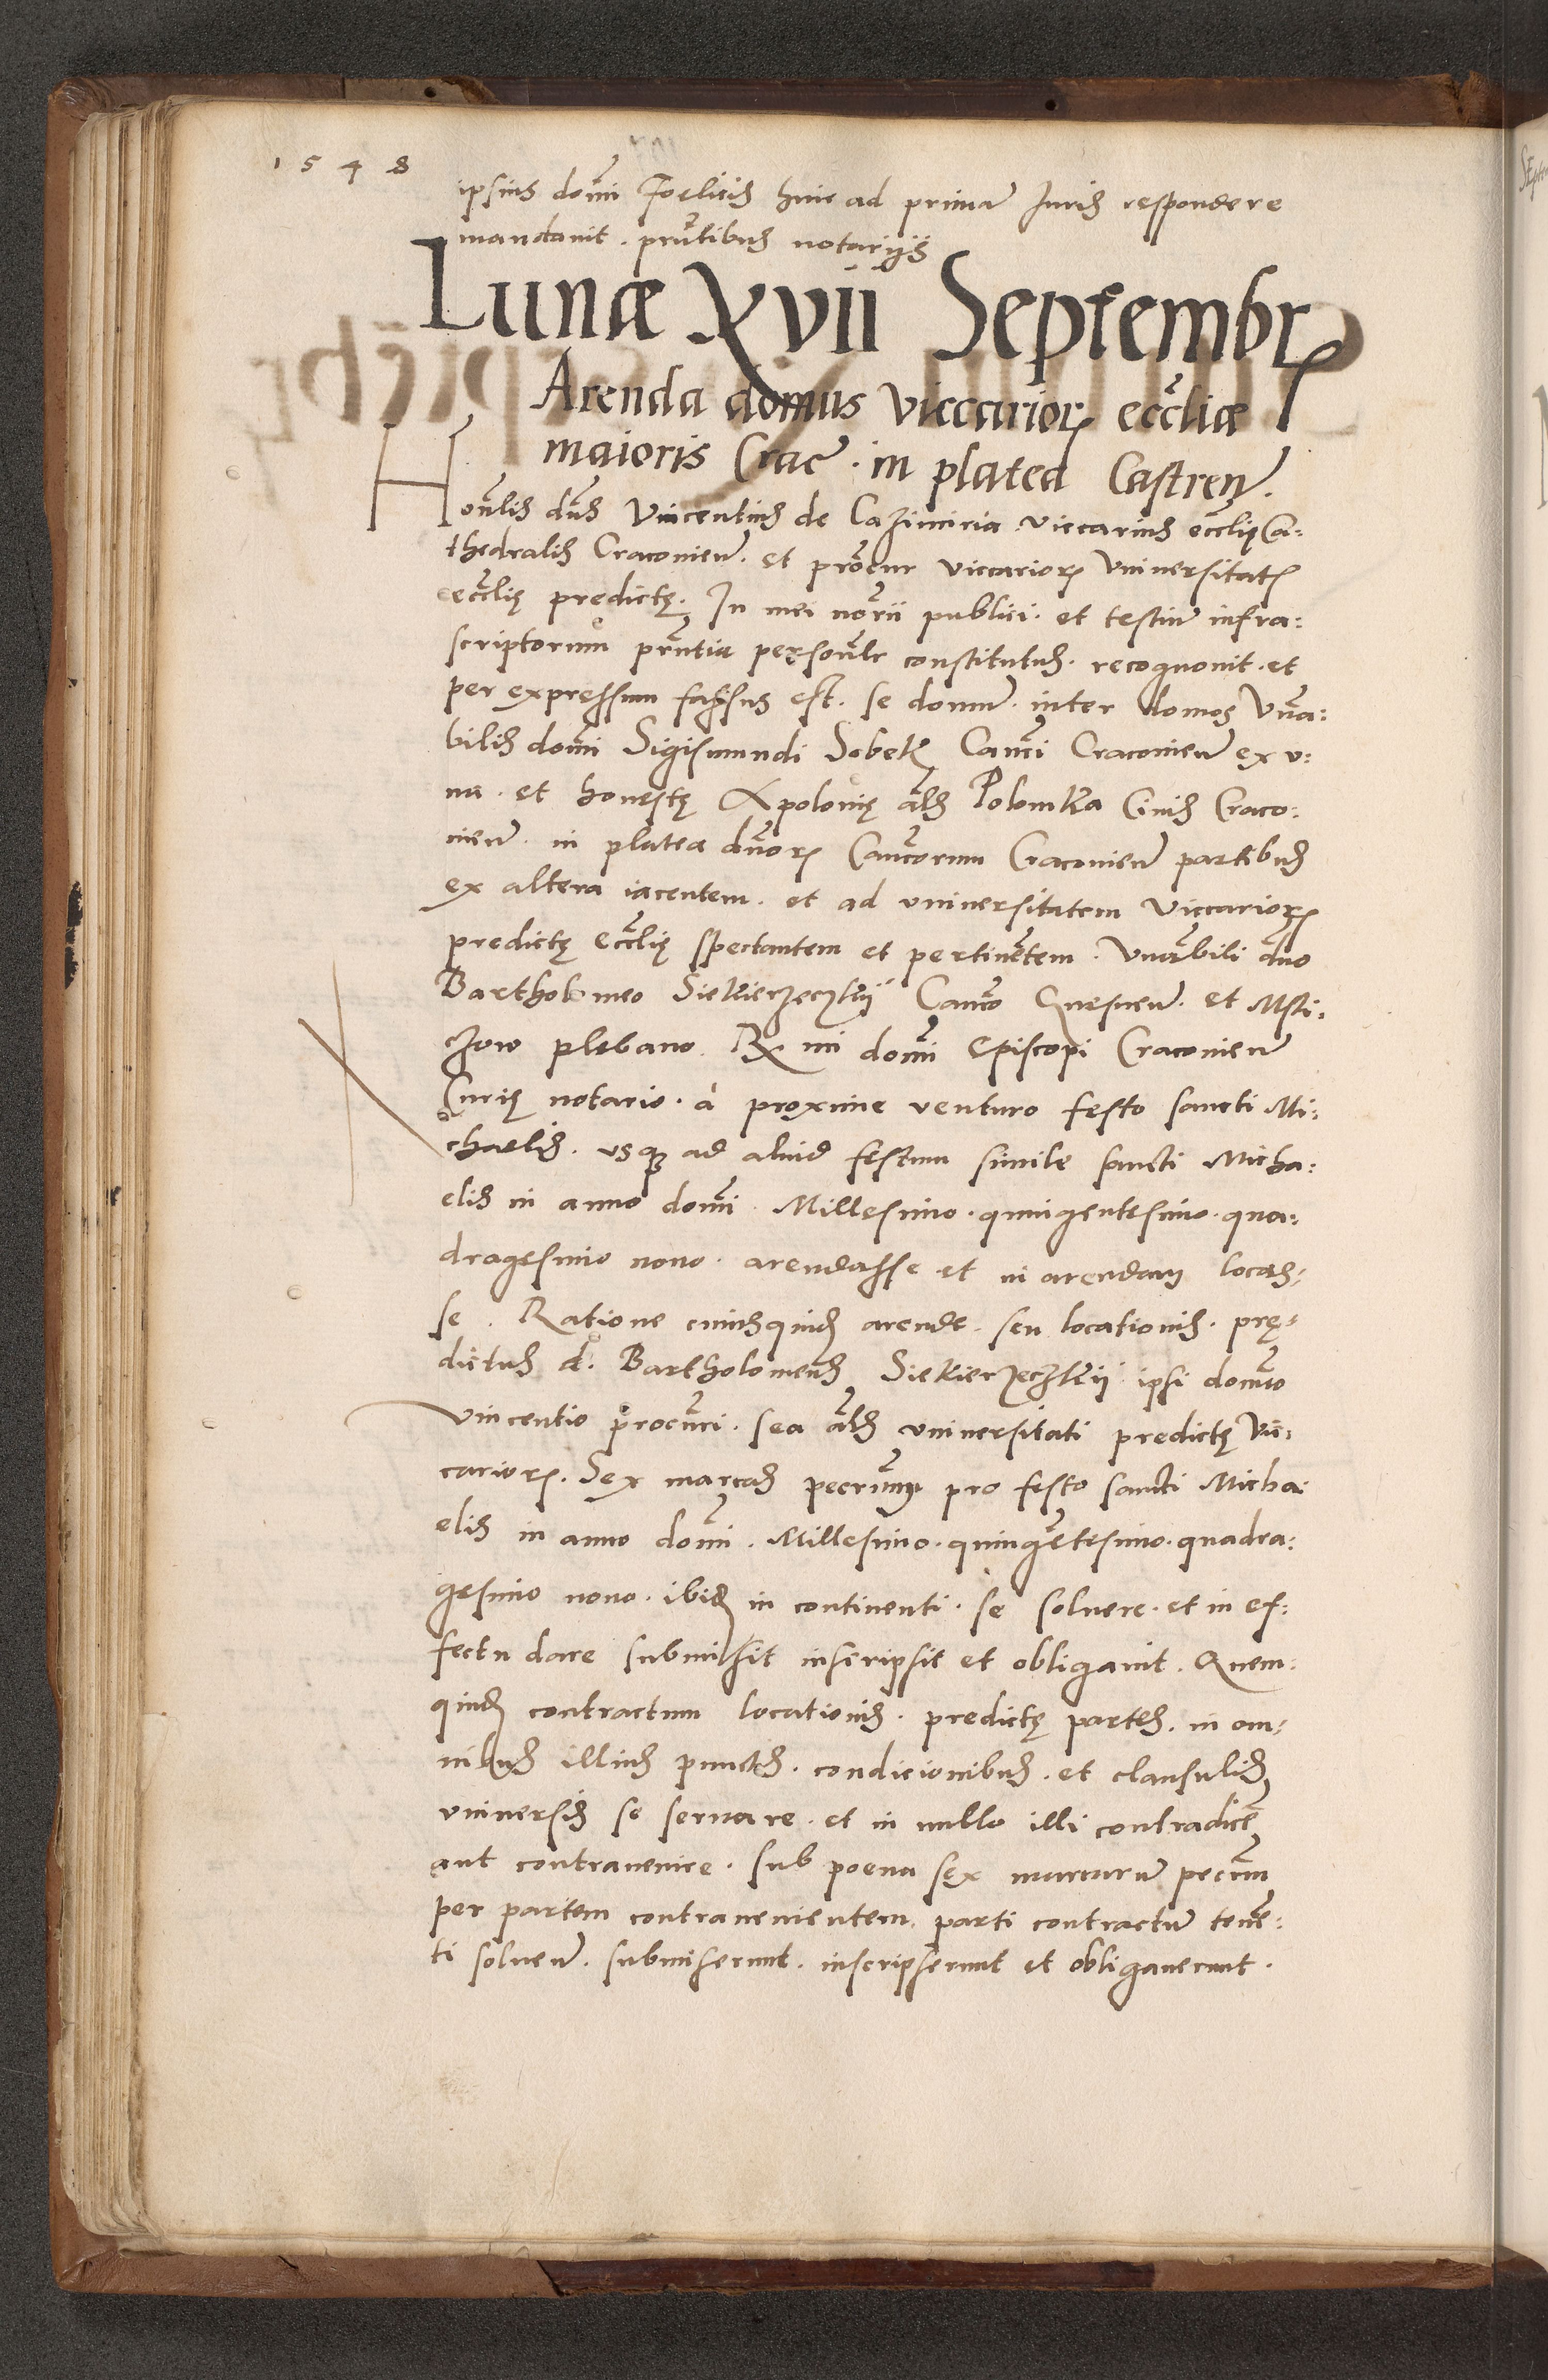 1548
ipsius domi Foelicis hinc ad primam Juris respondere
mandavit. pntibus notariis
Lunæ XVII Septembr
Arenda domus viccarior ecclliæ
maioris Crac. in platea Castren.
Honlis dns Vincentius de Cazimiria viccarius ecclię Ca:
thedralis Cracovien. et procur viccarior Universitatis
eccllię predictę. In mei norii publici. et testium infra:
scriptorum pntia personlr constitutus. recognovit. et
per expressum fassus est. se domum. inter domos Vnra:
bilis domi Sigismundi Sobek Canci Cracovien ex u:
na. et honestę Apolonię als Polomka Civis Craco:
vien. in platea dnor Cancorum Cracovien partibus
ex altera iacentem. et ad universitatem viccarior
predictę eccllię spectantem et pertinentem. Vnrabili dno
Bartholomeo Siekierzeczkii Canco Gnesnen. et Msti:
czow plebano. Rmi domi Episcopi Cracovien
Curię notario. à proxime venturo festo sancti Mi:
chaelis. usq ad aliud festum simile sancti Micha:
elis in anno domi Millesimo. quingentesimo. qua:
dragesimo nono. arendasse et in arendam locas:
se. Ratione cuiusquid arende. seu locationis. prę:
dictus d. Bartholomeus Siekierzeczkii ipsi domno
Vincentio procuri. sea als universitati predictę vic:
carior. Sex marcas pecunr pro festo sancti Micha:
elis in anno domi. Millesimo. quingentesimo. quadra:
gesimo nono. ibid in continenti. se solvere. et in ef:
fectu dare submisit inscripsit et obligavit. Quem:
quid contractum locationis. predictę partes. in om:
nibus illius punctis. condicionibus. et clausulis
universis se servare. et in nullo illi contradice
aut contravenire. sub poena sex marcarum pecun
per partem contravenientem. parti contractum tenen:
ti solven. submiserunt. inscripserunt et obligaverunt.